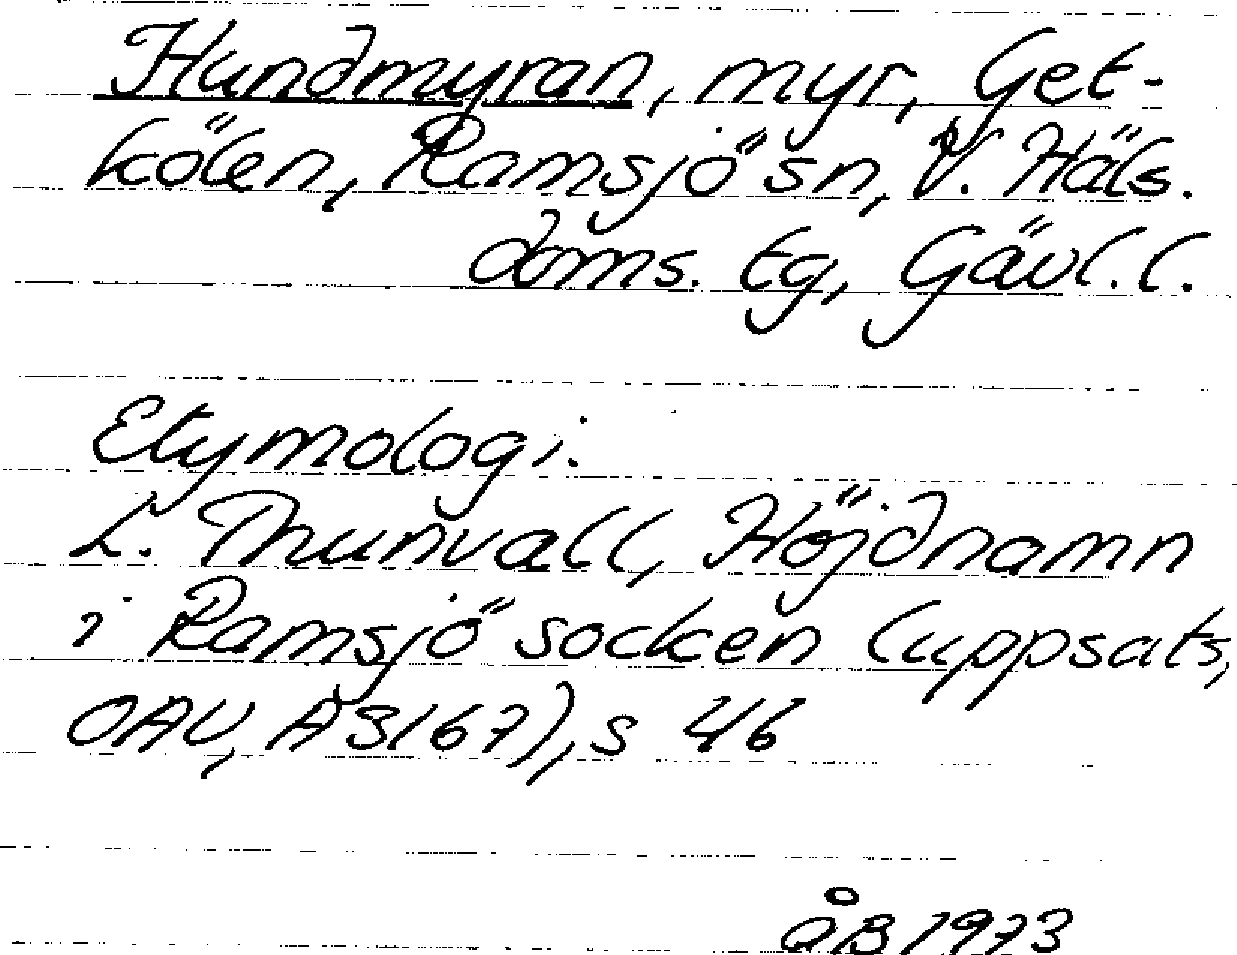 Hundmyran, myr, Get-
kölen, Ramsjö sn, V. Häls.
doms. tg, Gävl. l.
Etymologi.
L. Thunvall, Höjdnamn
i Ramsjö socken (uppsats,
OAU, AS167), s 46
åB 1973